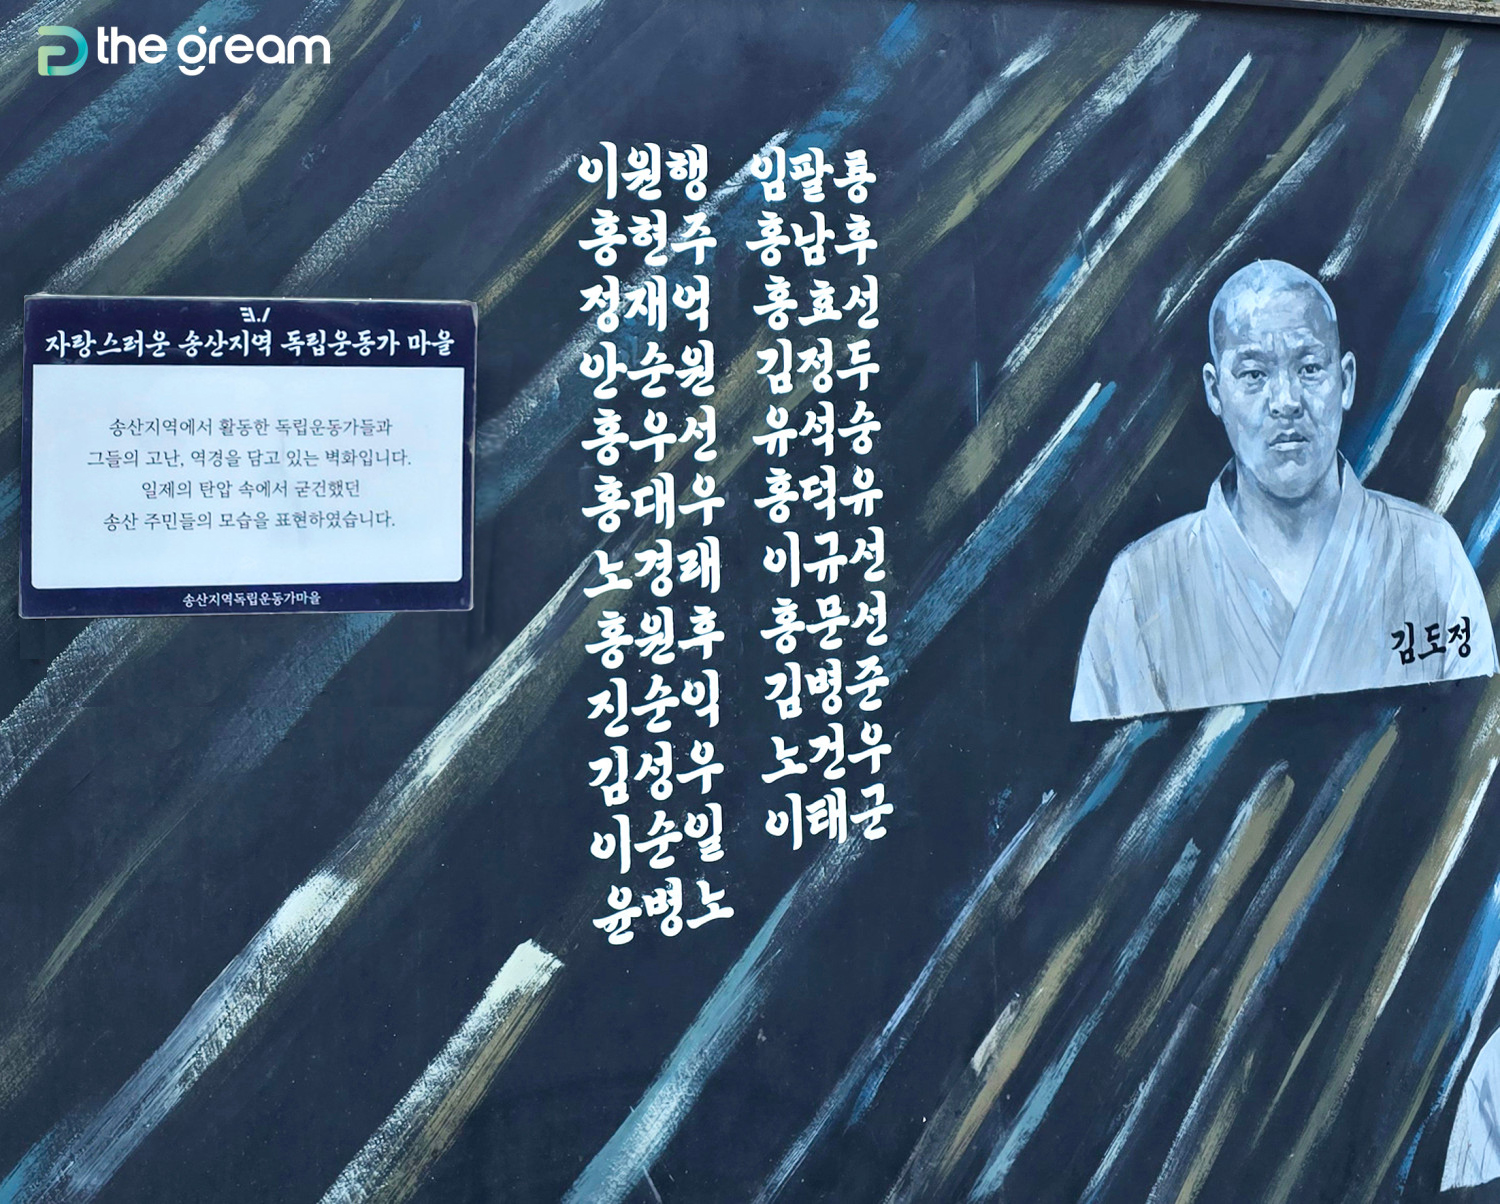 the gream
3.1
자랑스러운 송산지역 독립운동가 마을
송산지역에서 활동한 독립운동가들과
그들의 고난, 역경을 담고 있는 벽화입니다.
일제의 탄압 속에서 굳건했던
송산 주민들의 모습을 표현하였습니다.
송산지역독립운동가마을
이원행
홍현주
정재억
안순원
홍우선
홍대우
노경래
홍원후
진순익
김성우
이순일
윤병노
임팔룡
홍남후
홍효선
김정두
유석숭
홍덕유
이규선
홍문선
김병준
노건우
이태군
김도정